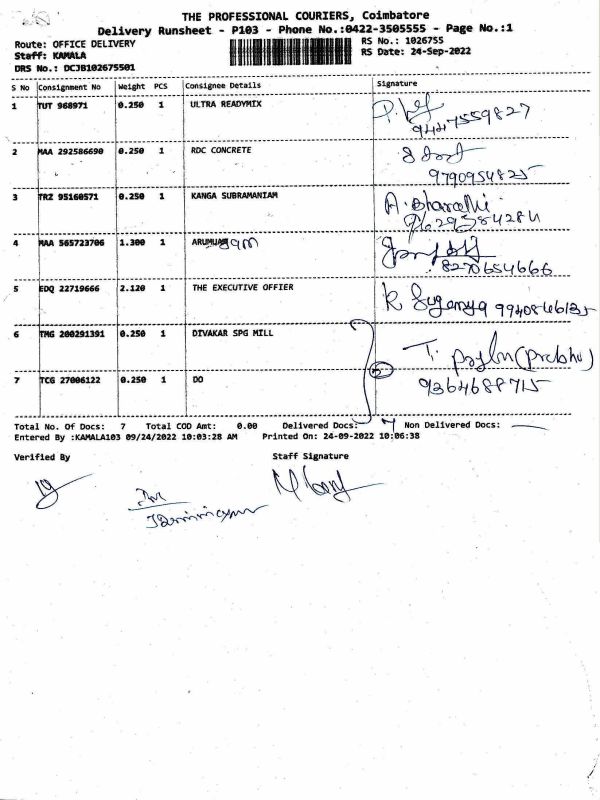 THE PROFESSIONAL COURIERS, Coimbatore
Delivery Runsheet - P103 - Phone No.:0422-3505555 - Page No.:1
Route: OFFICE DELIVERY RS No.: 1026755
Staff: KAMALA RS Date: 24-Sep-2022
DRS No.: DCJB102675501
S No Consignment No Weight PCS Consignee Details Signature
1 TUT 968971 0.250 1 ULTRA READYMIX
9447559827
2 MAA 292586690 0.250 1 RDC CONCRETE
9790954825
3 TRZ 95160571 0.250 1 KANGA SUBRAMANIAM A. Bharathi
9629584284
4 MAA 565723706 1.300 1
8270654666
5 EDQ 22719666 2.120 1 THE EXECUTIVE OFFIER K Suganya 9940846135
6 TMG 200291391 0.250 1 DIVAKAR SPG MILL T. (Prabhu)
7 TCG 27006122 0.250 1 DO 9364688715
Total No. Of Docs: 7 Total COD Amt: 0.00 Delivered Docs: 7 Non Delivered Docs:
Entered By :KAMALA103 09/24/2022 10:03:28 AM Printed On: 24-09-2022 10:06:38
Verified By Staff Signature